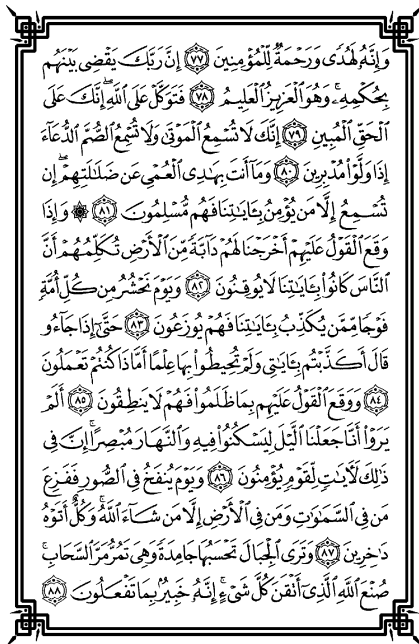 وَإِنَّهُۥ لَهُدًى وَرَحْمَةٌ لِّلْمُؤْمِنِينَ ﴿٧٧﴾ إِنَّ رَبَّكَ يَقْضِى بَيْنَهُم
بِحُكْمِهِۦ ۚ وَهُوَ ٱلْعَزِيزُ ٱلْعَلِيمُ ﴿٧٨﴾ فَتَوَكَّلْ عَلَى ٱللَّهِ ۖ إِنَّكَ عَلَى
ٱلْحَقِّ ٱلْمُبِينِ ﴿٧٩﴾ إِنَّكَ لَا تُسْمِعُ ٱلْمَوْتَىٰ وَلَا تُسْمِعُ ٱلصُّمَّ ٱلدُّعَآءَ
إِذَا وَلَّوْا۟ مُدْبِرِينَ ﴿٨٠﴾ وَمَآ أَنتَ بِهَـٰدِى ٱلْعُمْىِ عَن ضَلَـٰلَتِهِمْ ۖ إِن
تُسْمِعُ إِلَّا مَن يُؤْمِنُ بِـَٔايَـٰتِنَا فَهُم مُّسْلِمُونَ ﴿٨١﴾ ۞ وَإِذَا
وَقَعَ ٱلْقَوْلُ عَلَيْهِمْ أَخْرَجْنَا لَهُمْ دَآبَّةً مِّنَ ٱلْأَرْضِ تُكَلِّمُهُمْ أَنَّ
ٱلنَّاسَ كَانُوا۟ بِـَٔايَـٰتِنَا لَا يُوقِنُونَ ﴿٨٢﴾ وَيَوْمَ نَحْشُرُ مِن كُلِّ أُمَّةٍ
فَوْجًا مِّمَّن يُكَذِّبُ بِـَٔايَـٰتِنَا فَهُمْ يُوزَعُونَ ﴿٨٣﴾ حَتَّىٰٓ إِذَا جَآءُو
قَالَ أَكَذَّبْتُم بِـَٔايَـٰتِى وَلَمْ تُحِيطُوا۟ بِهَا عِلْمًا أَمَّاذَا كُنتُمْ تَعْمَلُونَ
﴿٨٤﴾ وَوَقَعَ ٱلْقَوْلُ عَلَيْهِم بِمَا ظَلَمُوا۟ فَهُمْ لَا يَنطِقُونَ ﴿٨٥﴾ أَلَمْ
يَرَوْا۟ أَنَّا جَعَلْنَا ٱلَّيْلَ لِيَسْكُنُوا۟ فِيهِ وَٱلنَّهَارَ مُبْصِرًا ۚ إِنَّ فِى
ذَٰلِكَ لَـَٔايَـٰتٍ لِّقَوْمٍ يُؤْمِنُونَ ﴿٨٦﴾ وَيَوْمَ يُنفَخُ فِى ٱلصُّورِ فَفَزِعَ
مَن فِى ٱلسَّمَـٰوَٰتِ وَمَن فِى ٱلْأَرْضِ إِلَّا مَن شَآءَ ٱللَّهُ ۚ وَكُلٌّ أَتَوْهُ
دَٰخِرِينَ ﴿٨٧﴾ وَتَرَى ٱلْجِبَالَ تَحْسَبُهَا جَامِدَةً وَهِىَ تَمُرُّ مَرَّ ٱلسَّحَابِ ۚ
صُنْعَ ٱللَّهِ ٱلَّذِىٓ أَتْقَنَ كُلَّ شَىْءٍ ۚ إِنَّهُۥ خَبِيرٌۢ بِمَا تَفْعَلُونَ ﴿٨٨﴾